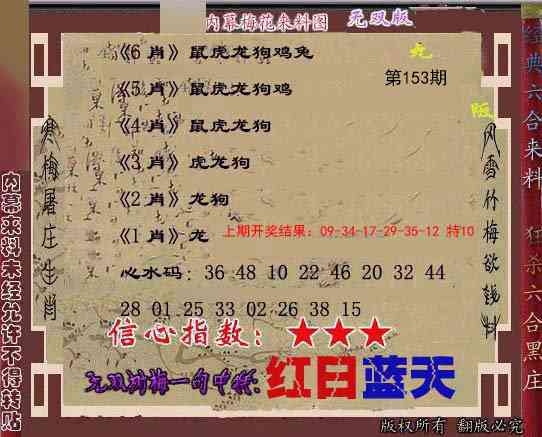 内幕梅花来料图 无双版
《6肖》鼠虎龙狗鸡兔
无
第153期
《5肖》鼠虎龙狗鸡
版
《4肖》鼠虎龙狗
《3肖》虎龙狗
《2肖》龙狗
《1肖》龙
上期开奖结果：09-34-17-29-35-12 特10
心水码：36 48 10 22 46 20 32 44
28 01 25 33 02 26 38 15
信心指数：★★★
无双
梅一句中特:红日蓝天
寒梅屠庄生肖
风雪竹梅欲钱料
内幕来料未经允许不得转贴
经典六合来料
狂杀六合黑庄
版权所有 翻版必究